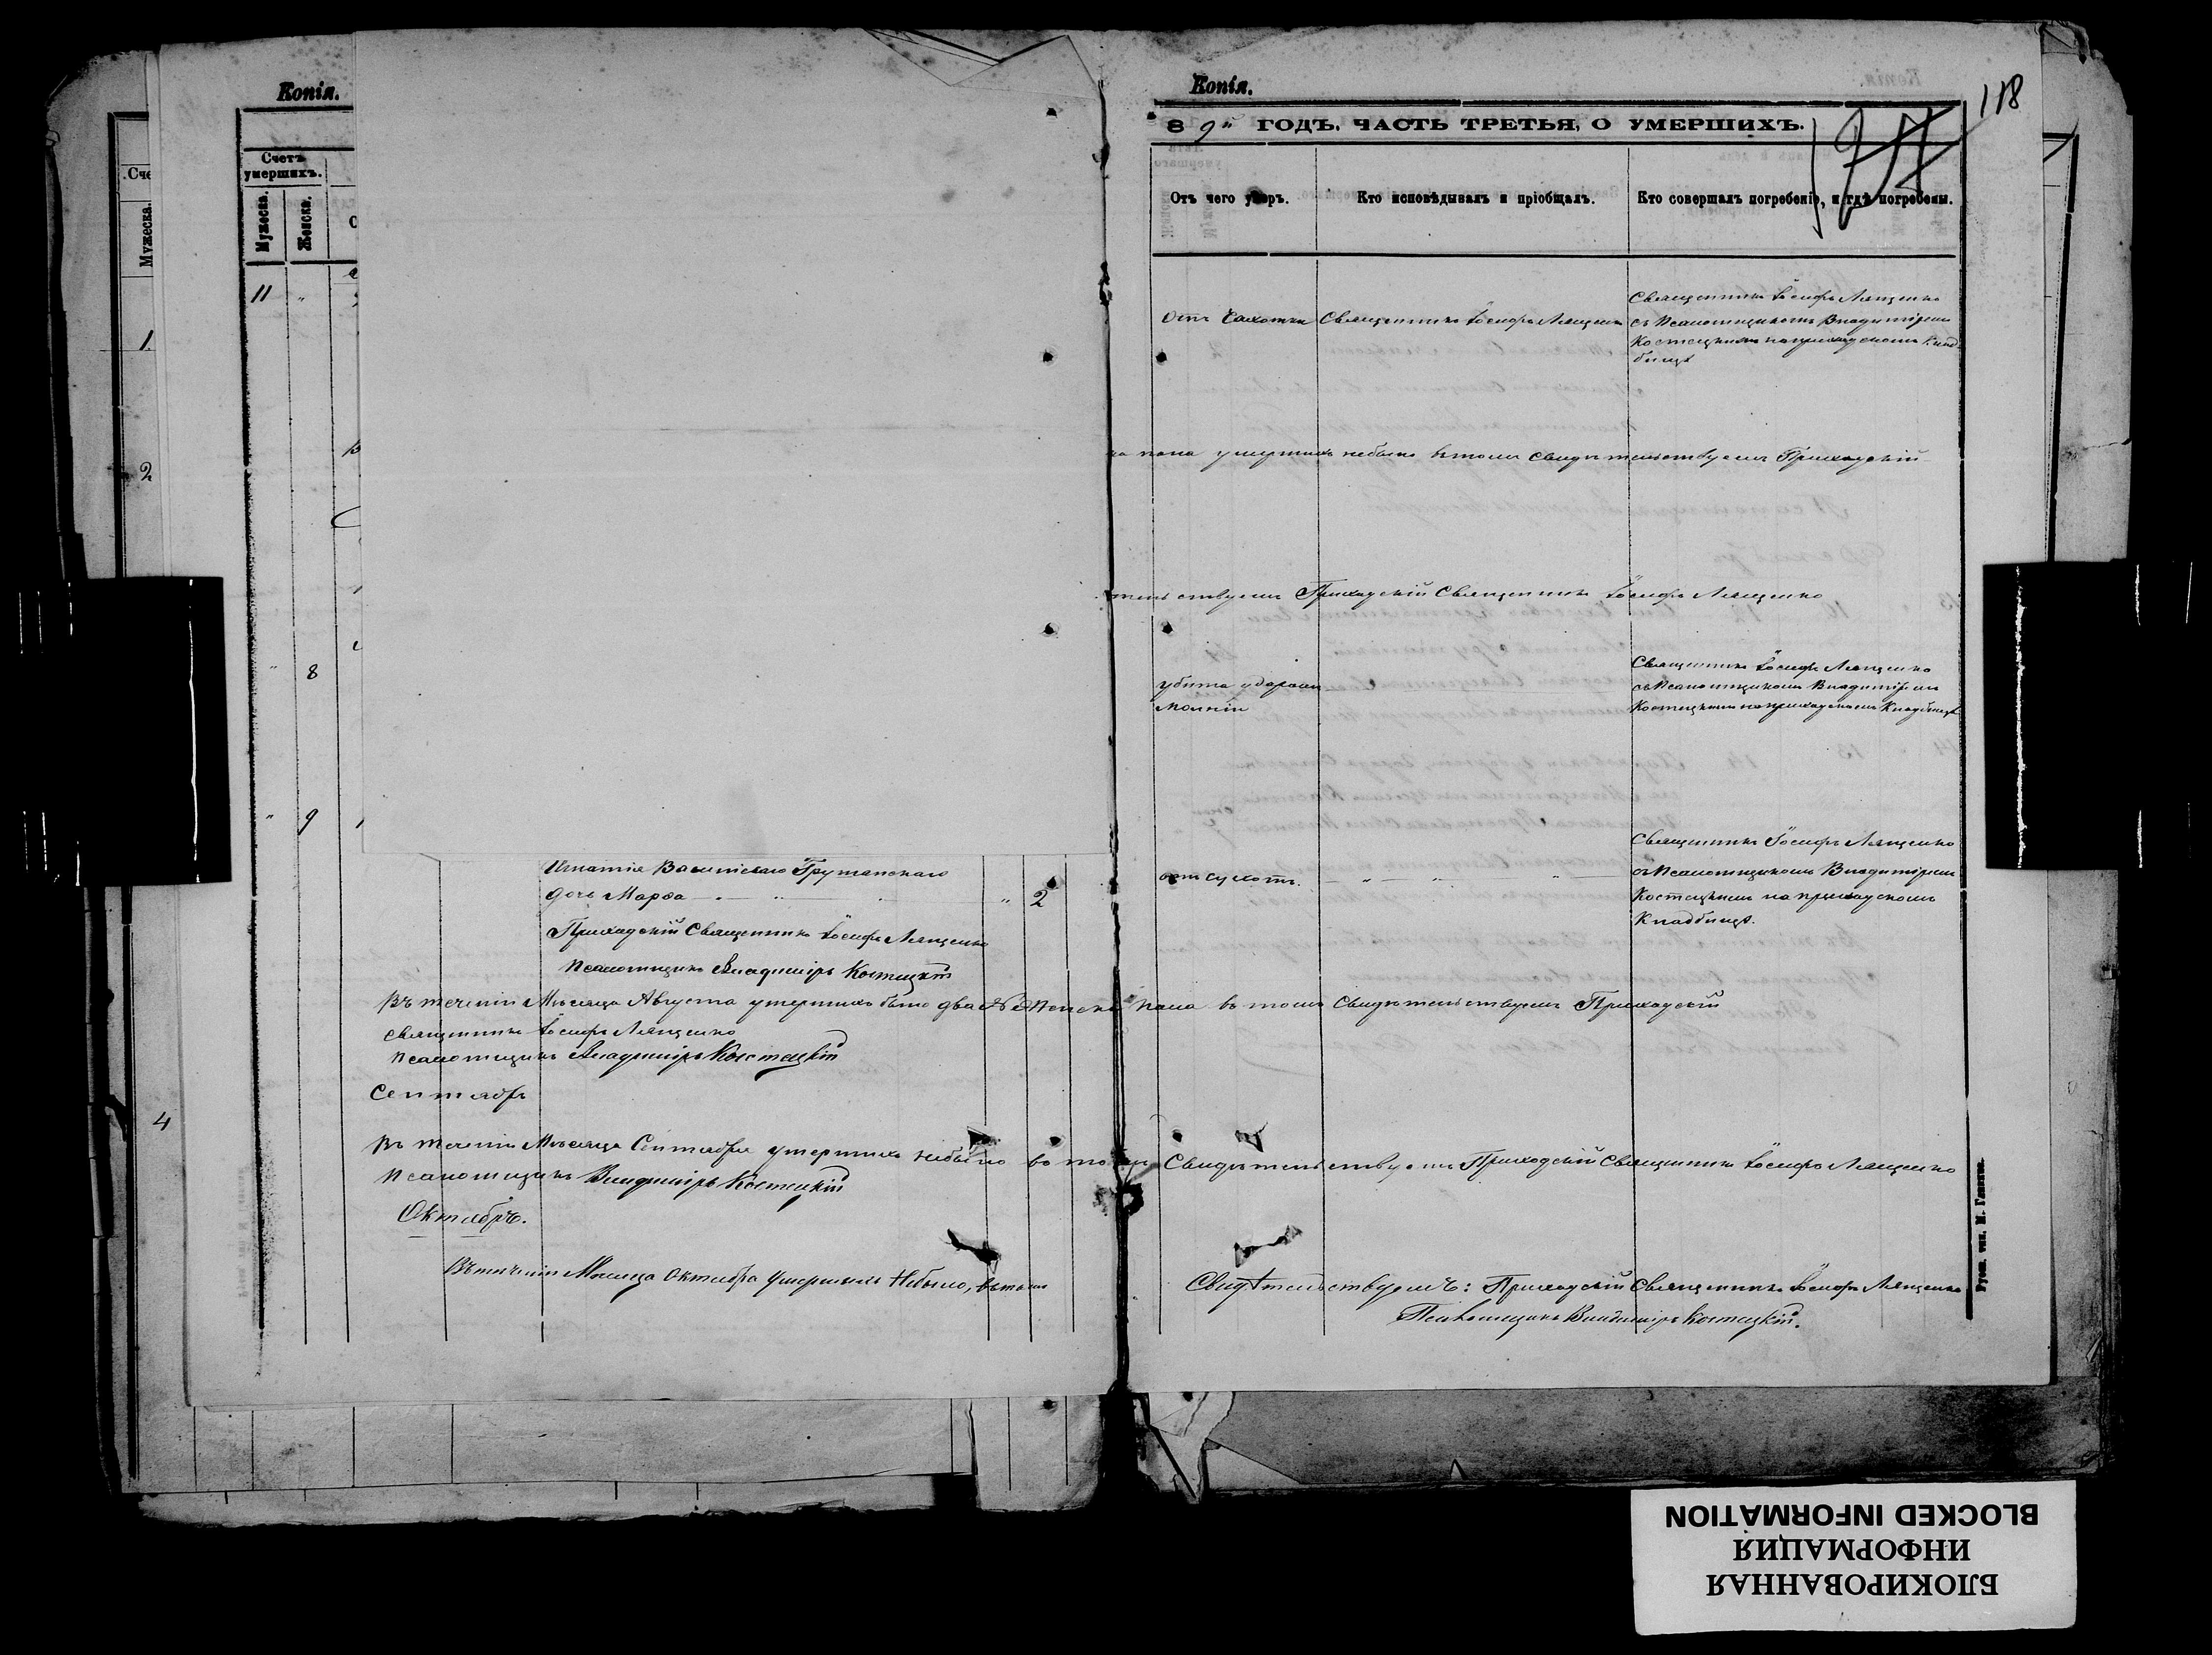 Копія.
Счетъ умершихъ.
Мужеска.
Женска.
.Сче
Мужеска.
11 "
1.
2
" 8
" 9
4
Игнатія Василіева Грушанскаго
дочь Марѳа " 2
Приходскій Священникъ Іосифъ Лященко
Псаломщикъ Владиміръ Костецкій
Въ теченіи Мѣсяца Августа умершихъ было два
Священникъ Іосифъ Лященко
Псаломщикъ Владиміръ Костецкій
Сентябрь
Въ теченіи Мѣсяца Сентября умершихъ небыло въ томъ
Псаломщикъ Владиміръ Костецкій
Октябрь.
Въ теченіи Мѣсяца Октября Умершихъ Небыло, въ томъ
Копія.
118
8 9" ГОДЪ. ЧАСТЬ ТРЕТЬЯ, О УМЕРШИХЪ.
Отъ чего умеръ.
Кто исповѣдывалъ и пріобщалъ.
Кто совершалъ погребеніе, и гдѣ погребены.
Отъ Чахотки
Священникъ Іосифъ Лященко
Священникъ Іосифъ Лященко
съ Псаломщикомъ Владиміромъ
Костецкимъ на приходскомъ Клад-
бищѣ
пола умершихъ небыло въ томъ свидѣтельствуемъ Приходскій
тельствуемъ Приходскій Священникъ Іосифъ Лященко
убита ударомъ
молніи
Священникъ Іосифъ Лященко
съ Псаломщикомъ Владиміромъ
Костецкимъ на приходскомъ Кладбищѣ
отъ сухотъ.
Священникъ Іосифъ Лященко
съ Псаломщикомъ Владиміромъ
Костецкимъ на приходскомъ
Кладбищѣ.
пола въ томъ Свидѣтельствуемъ Приходскій
Свидѣтельствуемъ Приходскій Священникъ Іосифъ Лященко
Свидѣтельствуемъ: Приходскій Священникъ Іосифъ Лященко
Псаломщикъ Владиміръ Костецкій.
БЛОКИРОВАННАЯ
ИНФОРМАЦИЯ
BLOCKED INFORMATION